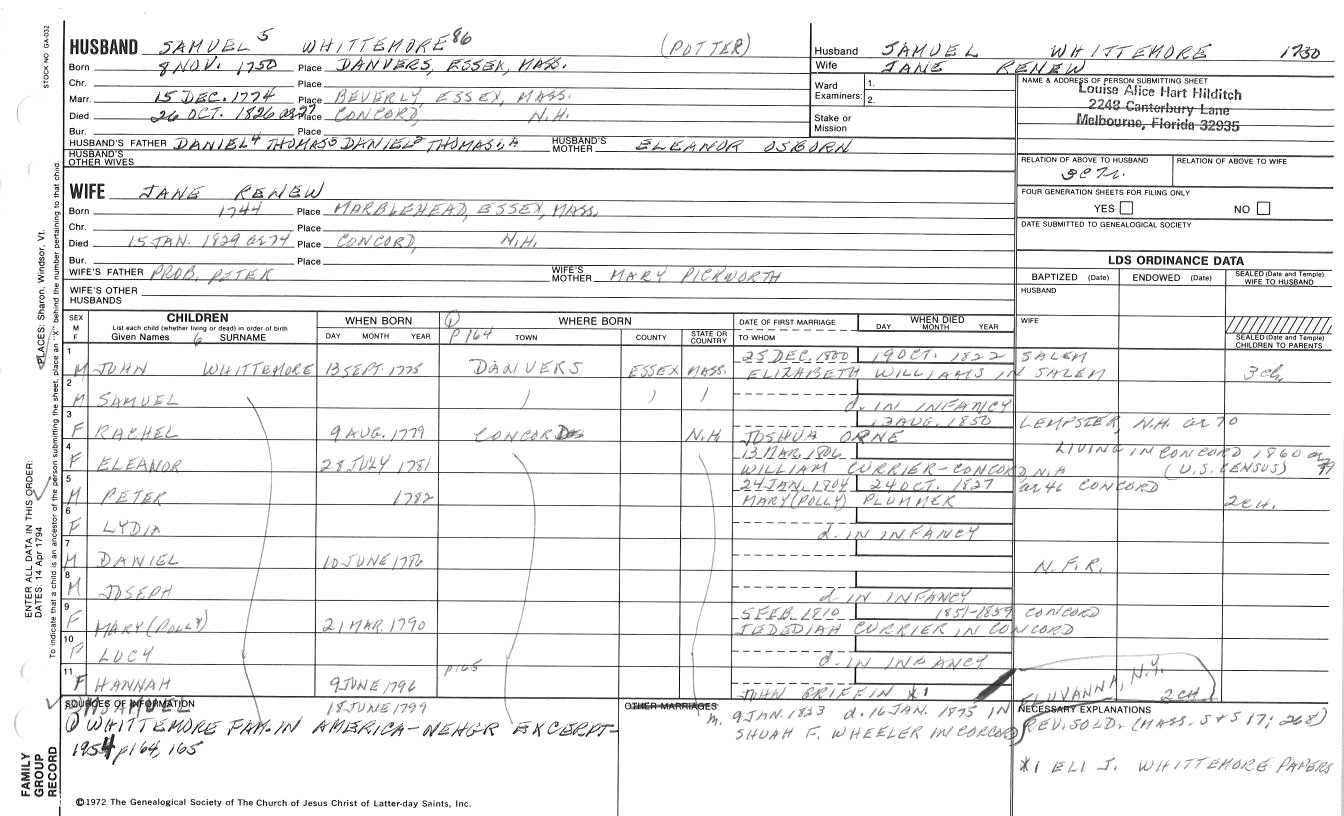 STOCK NO GA-032
HUSBAND SAMUEL 5 WHITTEMORE 86 (POTTER)
Born 8 NOV. 1750 Place DANVERS, ESSEX, MASS.
Chr. Place
Marr. 15 DEC. 1774 Place BEVERLY, ESSEX, MASS.
Died 26 OCT. 1826 Place CONCORD, N.H.
Bur. Place
HUSBAND'S FATHER DANIEL4 THOMAS3 DANIEL2 THOMAS1 HUSBAND'S MOTHER ELEANOR OSBORN
HUSBAND'S OTHER WIVES
Husband SAMUEL WHITTEMORE 1750
Wife JANE RENEW
Ward Examiners: 1. 2.
Stake or Mission
NAME & ADDRESS OF PERSON SUBMITTING SHEET
Louise Alice Hart Hilditch
2248 Canterbury Lane
Melbourne, Florida 32935
RELATION OF ABOVE TO HUSBAND RELATION OF ABOVE TO WIFE
FOUR GENERATION SHEETS FOR FILING ONLY
YES NO
DATE SUBMITTED TO GENEALOGICAL SOCIETY
WIFE JANE RENEW
Born 1744 Place MARBLEHEAD, ESSEX, MASS.
Chr. Place
Died 15 JAN. 1829 Place CONCORD, N.H.
Bur. Place
WIFE'S FATHER PROB. PETER WIFE'S MOTHER MARY PICKWORTH
WIFE'S OTHER HUSBANDS
LDS ORDINANCE DATA
BAPTIZED (Date) ENDOWED (Date) SEALED (Date and Temple) WIFE TO HUSBAND
HUSBAND
WIFE
SEALED (Date and Temple) CHILDREN TO PARENTS
SEX M F
CHILDREN
List each child (whether living or dead) in order of birth
Given Names 6 SURNAME
WHEN BORN DAY MONTH YEAR
① p164 WHERE BORN TOWN COUNTY STATE OR COUNTRY
DATE OF FIRST MARRIAGE TO WHOM
WHEN DIED DAY MONTH YEAR
25 DEC. 1800 19 OCT. 1822 SALEM
1 M JOHN WHITTEMORE 13 SEPT. 1775 DANVERS ESSEX MASS. ELIZABETH WILLIAMS IN SALEM 3 ch.
2 M SAMUEL d. IN INFANCY
13 AUG. 1850 LEMPSTER, N.H. 70
3 F RACHEL 9 AUG. 1779 CONCORD N.H JOSHUA ORNE
13 MAR. 1806 LIVING IN CONCORD 1860
4 F ELEANOR 28 JULY 1781 WILLIAM CURRIER-CONCORD, N.H (U.S. CENSUS) 79
24 JAN. 1804 24 OCT. 1827 46 CONCORD
5 M PETER 1782 MARY (POLLY) PLUMMER 2 CH.
6 F LYDIA d. IN INFANCY
7 M DANIEL 10 JUNE 1786 N.F.R.
8 M JOSEPH d. IN INFANCY
5 FEB. 1810 1851-1859 CONCORD
9 F MARY (POLLY) 21 MAR. 1790 JEDEDIAH CURRIER IN CONCORD
10 F LUCY d. IN INFANCY
p165
11 F HANNAH 9 JUNE 1796 JOHN GRIFFIN *1 FLUVANNA, N.Y. 2 CH
SOURCES OF INFORMATION
SAMUEL 18 JUNE 1799
① WHITTEMORE FAM. IN AMERICA-NEHGR EXCERPT-
1954 p164, 165
OTHER MARRIAGES
m. 9 JAN. 1823 d. 16 JAN. 1875 IN
SHUAH F. WHEELER IN CONCORD
NECESSARY EXPLANATIONS
REV. SOLD. (MASS. S+S 17; 268)
*1 ELI J. WHITTEMORE PAPERS
©1972 The Genealogical Society of The Church of Jesus Christ of Latter-day Saints, Inc.
FAMILY GROUP RECORD
ENTER ALL DATA IN THIS ORDER:
DATES: 14 Apr 1794
PLACES: Sharon, Windsor, Vt.
To indicate that a child is an ancestor of the person submitting the sheet, place an "X" behind the number pertaining to that child.